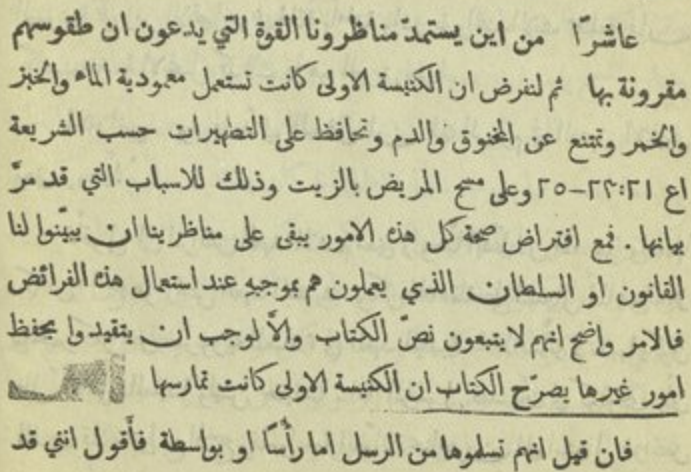 عاشرًا من اين يستمدّ مناظرونا القوة التي يدعون ان طقوسهم
مقرونة بها ثم لنفرض ان الكنيسة الاولى كانت تستعمل معمودية الماء والخبز
والخمر وتمتنع عن المخنوق والدم وتحافظ على التطهيرات حسب الشريعة
اع ٢١:‏٢٣–٢٥ وعلى مسح المريض بالزيت وذلك للاسباب التي قد مرَّ
بيانها . فمع افتراض صحة كل هذه الامور يبقى على مناظرينا ان يبيّنوا لنا
القانون او السلطان الذي يعملون هم بموجبهِ عند استعمال هذه الفرائض
فالامر واضح انهم لا يتبعون نصّ الكتاب والاَّ لوجب ان يتقيدوا بحفظ
امور غيرها يصرّح الكتاب ان الكنيسة الاولى كانت تمارسها
فان قيل انهم تسلموها من الرسل اما رأسًا او بواسطة فأقول انني قد